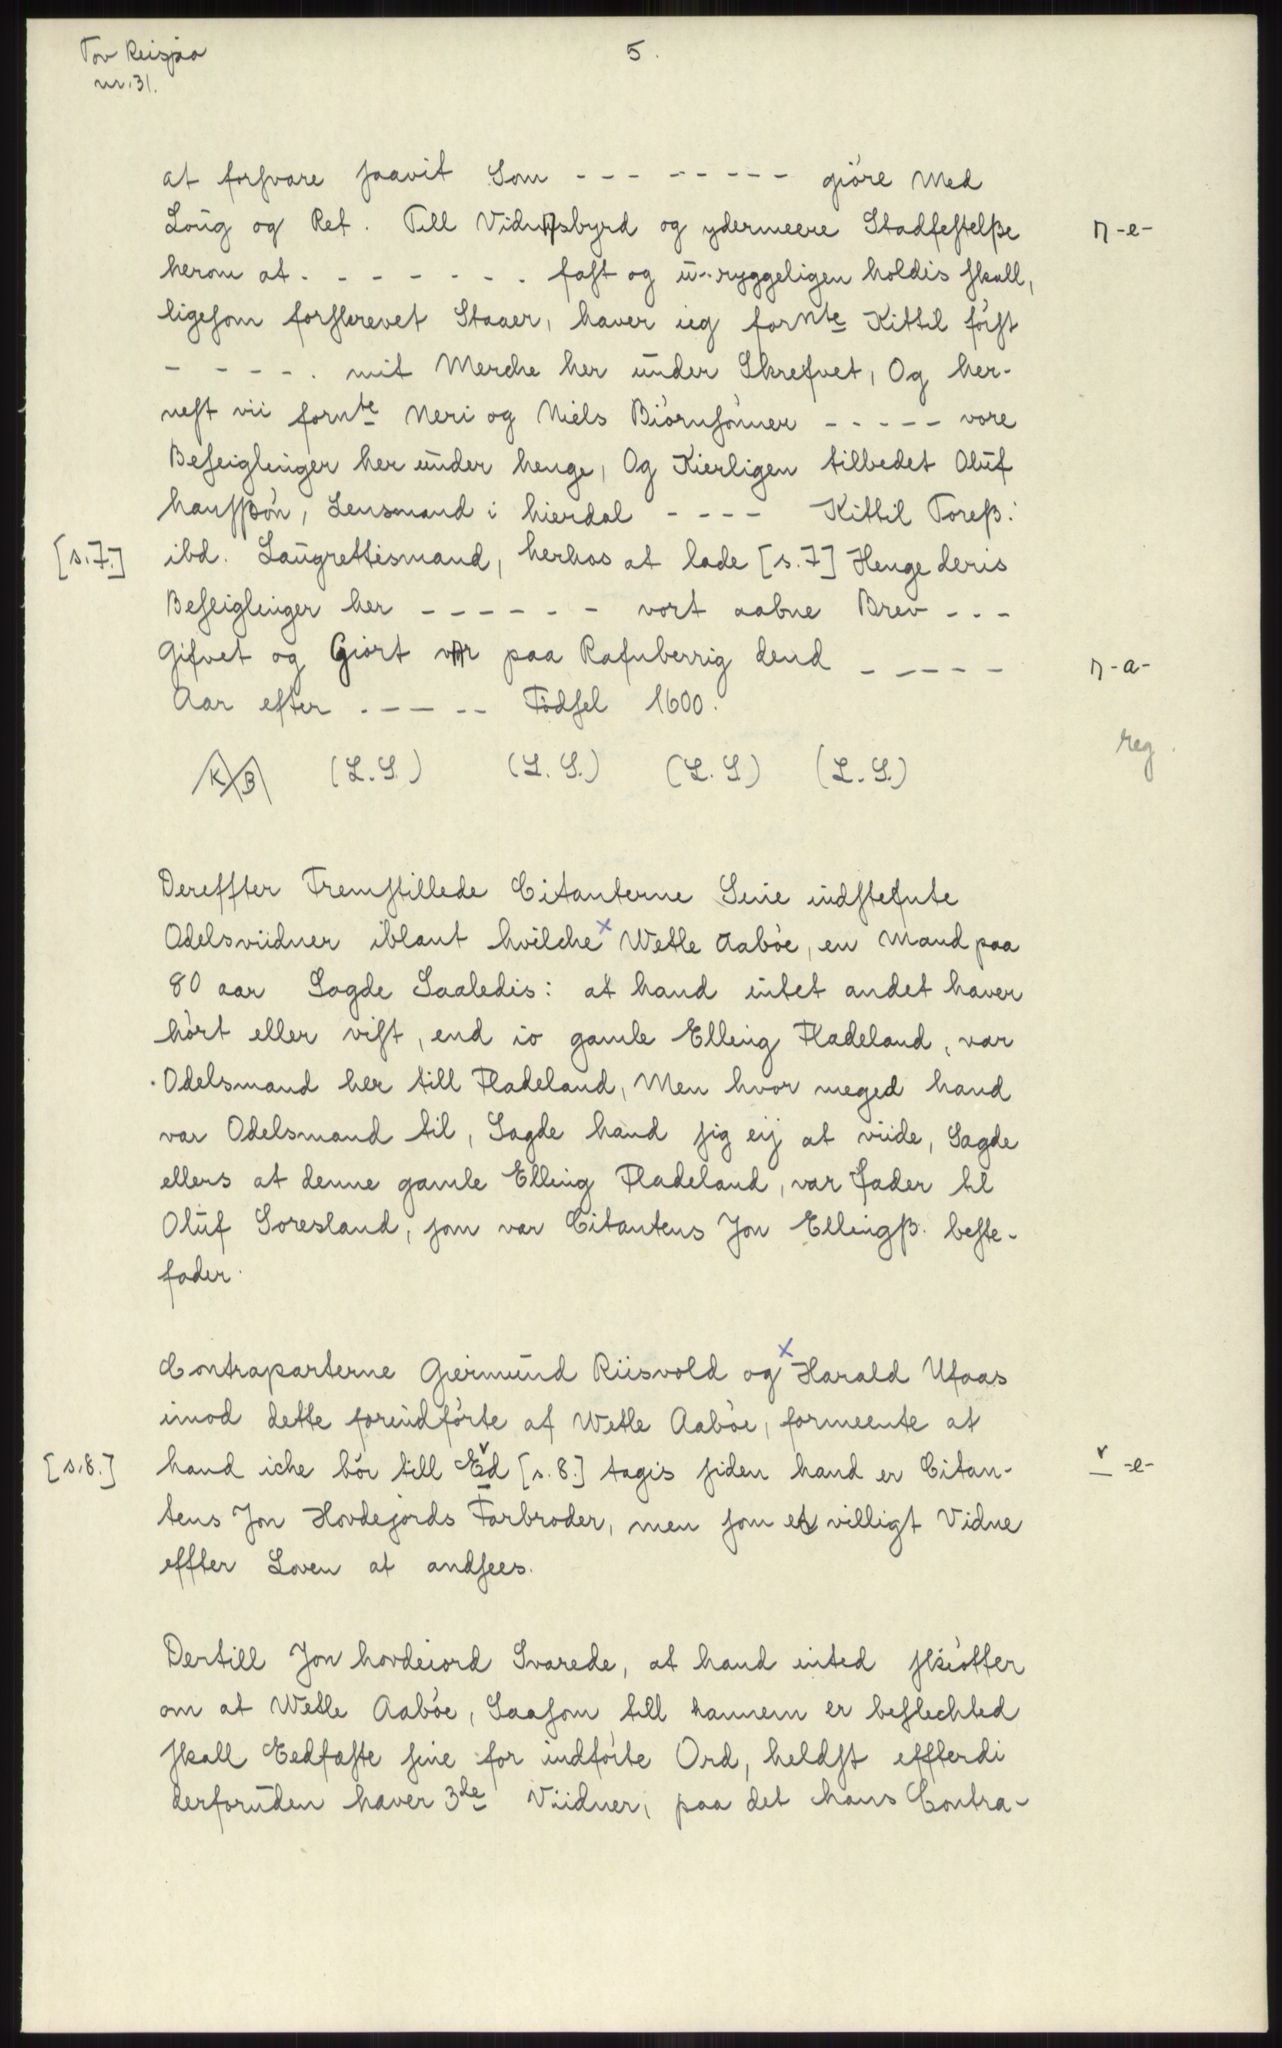 Tov Reisjaa
nr. 31.
5.
at forsvare saavit Som - - - - - - - - giöre Med
Loug og Ret. Till Vidnesbyrd og ydermeere Stadfestelße
n -e-
herom at - - - - - - - fast og u-ryggeligen holdis skall,
ligesom forskrevet Staaer, haver ieg fornte Kittil först
- - - - . mit Merche her under Skrefvet, Og her-
nest vii fornte Neri og Niels Biörnsönner - - - - - vore
Beseiglinger her under henge, Og Kierligen tilbedet Oluf
hansßön, Lensmand i hierdal - - - - Kittil Toreß:
[s. 7.] ibd. Laugrettismand, herhos at lade [s. 7] Henge deris
Beseiglinger her - - - - - - vort aabne Brev - - -
Gifvet og Giort var paa Rafnberrig dend - - - - -
n -a-
Aar efter - - - - - Födsel 1600.
reg.
K B (L. S.) (L. S.) (L. S.) (L. S.)
Dereffter Fremstillede Citanterne Sine indstefnte
Odelsviidner iblant hvilche x Wetle Aaböe, en Mand paa
80 aar Sagde Saaledis: at hand intet andet haver
hört eller vist, end io gamle Elling Fladeland, var
Odelsmand her till Fladeland, Men hvor meged hand
var Odelsmand til, Sagde hand sig eij at viide, Sagde
ellers at denne gamle Elling Fladeland, var fader til
Oluf Soresland, som var Citantens Jon Ellingß. beste-
fader.
Contraparterne Giermund Riisvold og x Harald Ufaas
imod dette forindförte af Wetle Aaböe, formeente at
[s. 8.] hand iche bör till Ed [s. 8.] tagis siden hand er Citan-
v -e-
tens Jon Hovdejords Farbroder, men som et villigt Vidne
effter Loven at andsees.
Dertill Jon hovdeiord Svarede, at hand inted skiötter
om at Wetle Aaböe, Saasom till hannem er beslechted
skall Eedfæste sine for indförte Ord, heldst effterdi
derforuden haver 3de Viidner, paa det hans Contra-